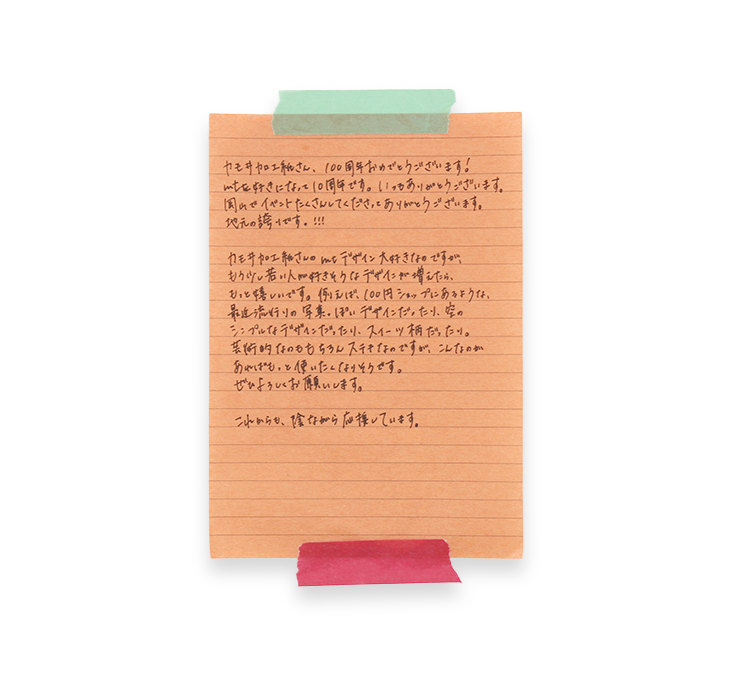 カモ井加工紙さん、100周年おめでとうございます!
mtを好きになって10周年です。いつもありがとうございます。
岡山でイベントたくさんしてくださってありがとうございます。
地元の誇りです。!!!
カモ井加工紙さんのmtデザイン大好きなのですが、
もう少し若い人が好きそうなデザインが増えたら、
もっと嬉しいです。例えば、100円ショップにあるような、
最近流行りの写真っぽいデザインだったり、空の
シンプルなデザインだったり、スイーツ柄だったり。
芸術的なのももちろんステキなのですが、こんなのが
あればもっと使いたくなりそうです。
ぜひよろしくお願いします。
これからも、陰ながら応援しています。